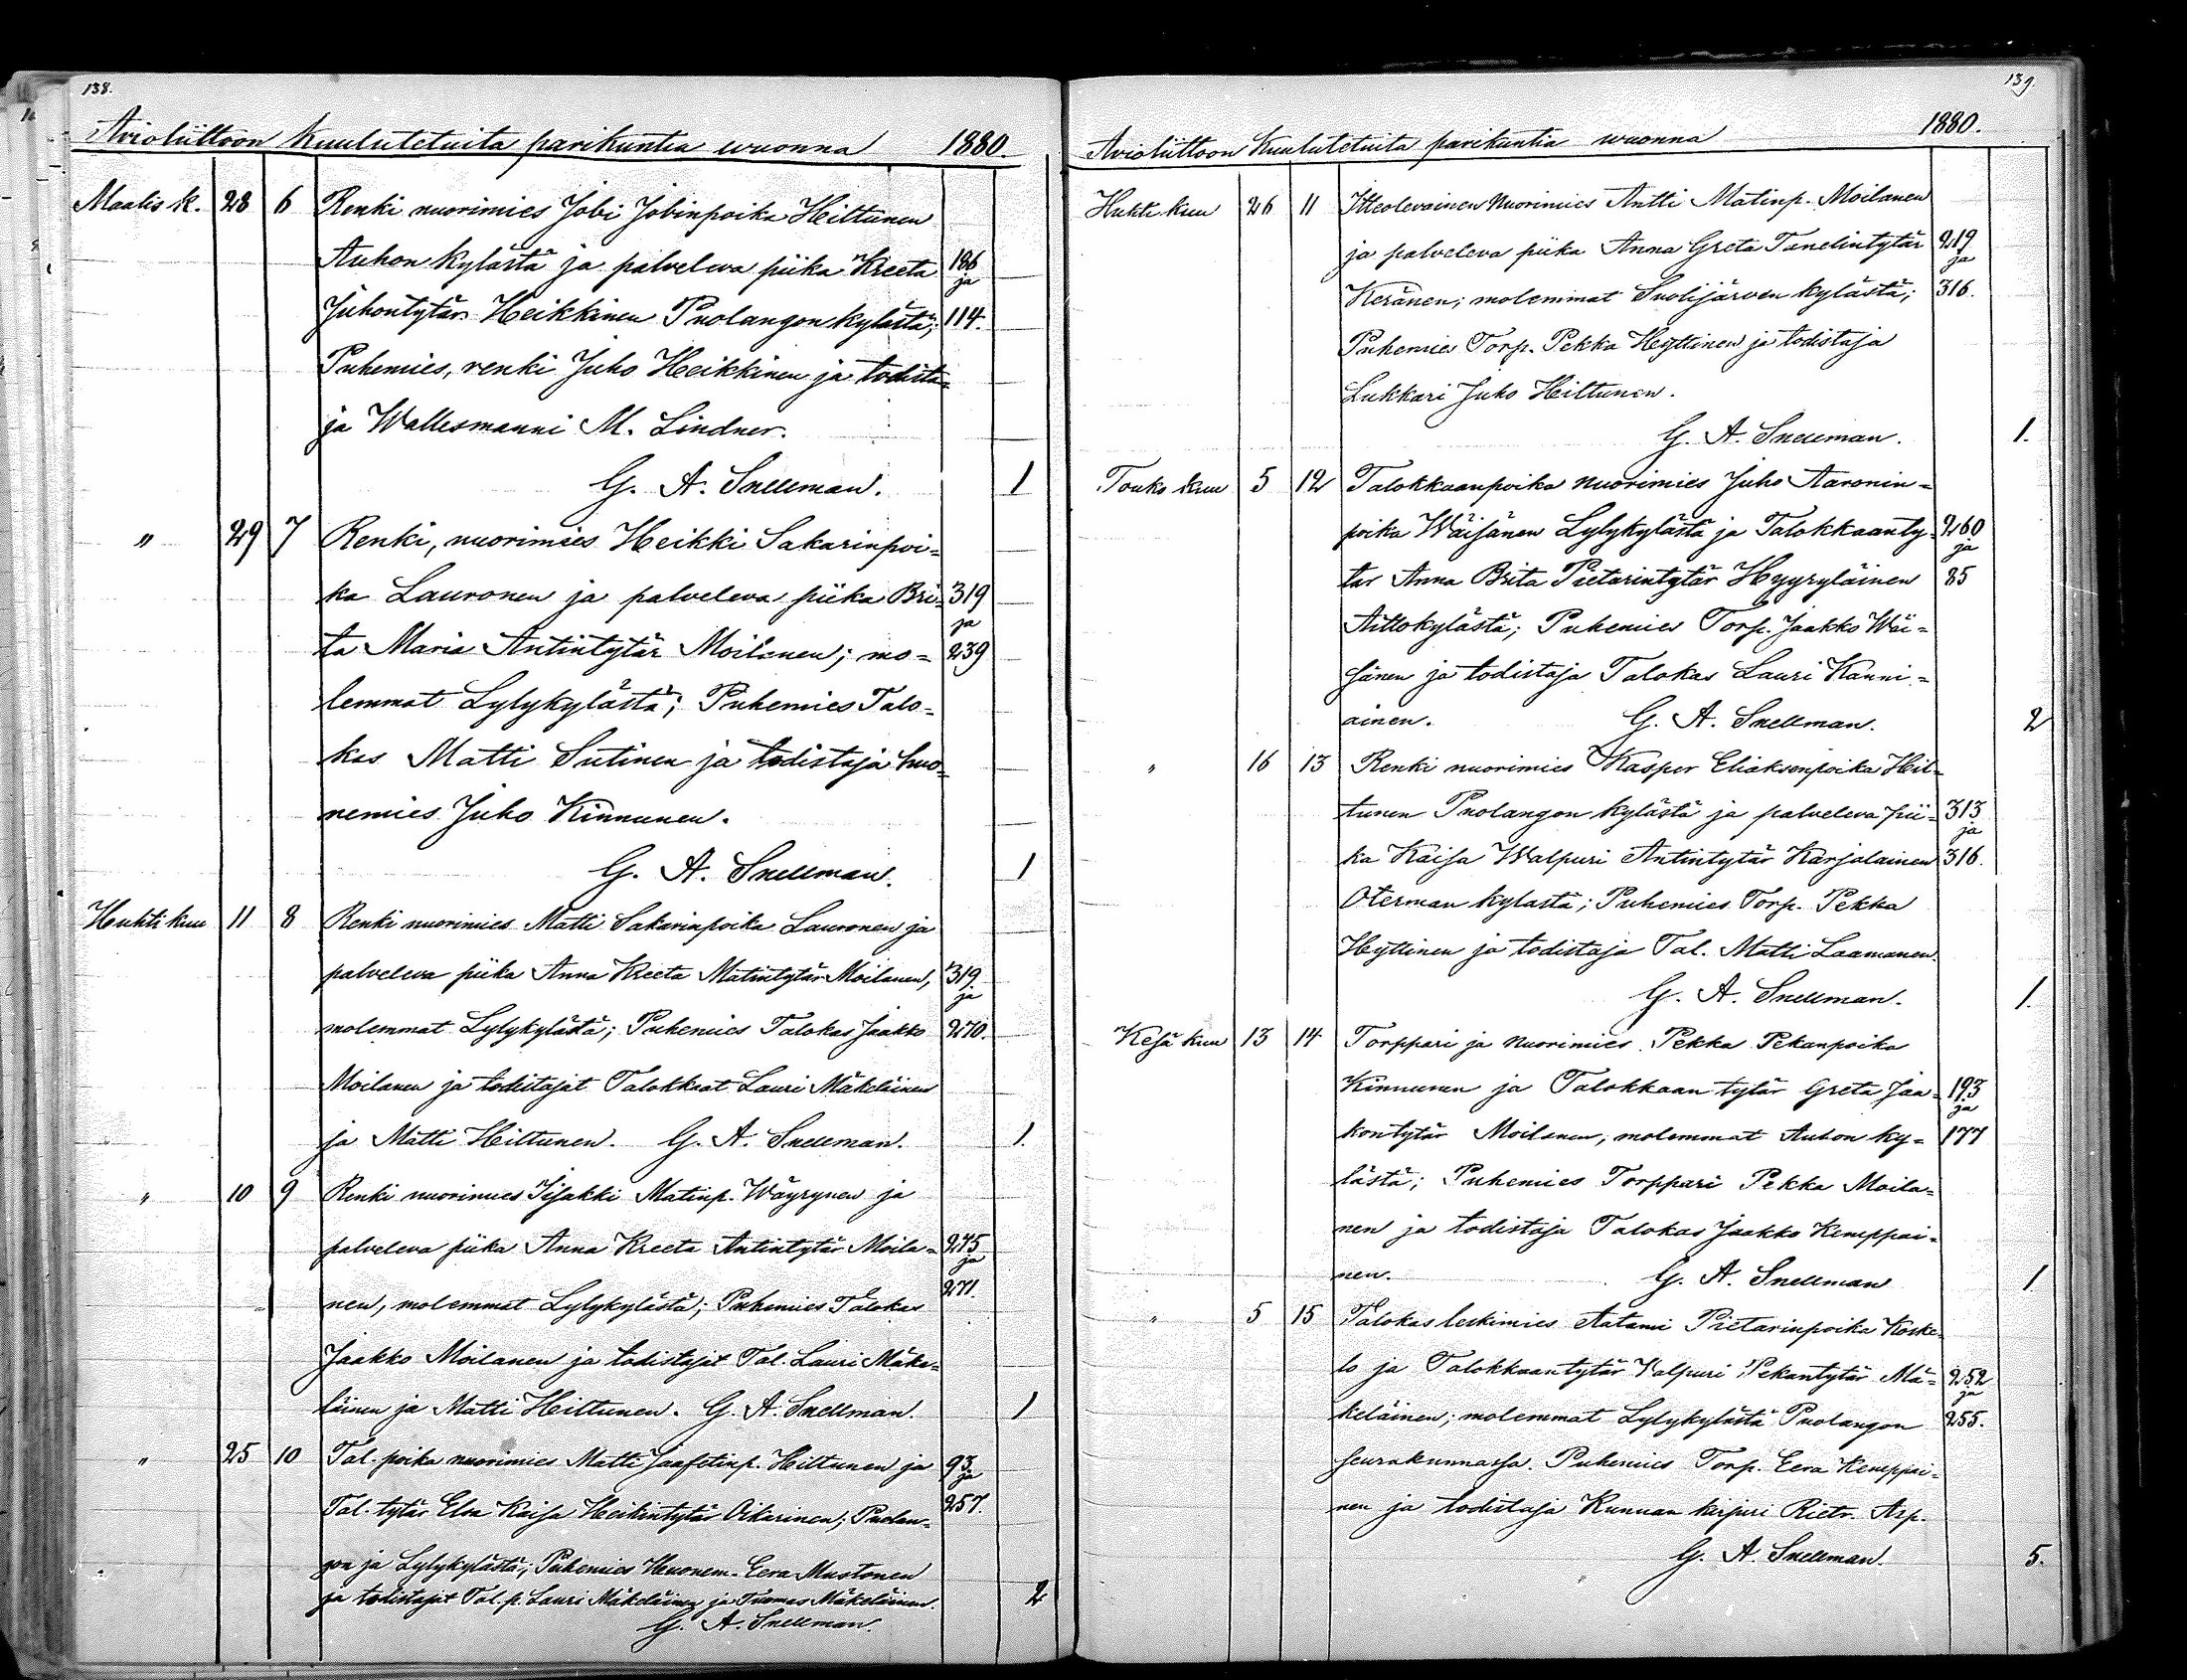 138.
Avioliittoon kuulutetuita parikuntia wuonna 1880.
Maalis k. 28 6 Renki nuorimies Jobi Jobinpoika Heiltunen
Auhon kylästä ja palveleva piika Kreeta 186 ja
Juhontytär Heikkinen Puolangon kylästä; 114.
Puhemies, renki Juho Heikkinen ja todista=
ja Wallesmanni M. Lindner.
G. A. Snellman. 1
" 29 7 Renki, nuorimies Heikki Sakarinpoi=
ka Lauronen ja palveleva piika Bri= 319 ja
ta Maria Antintytär Moilanen; mo= 239
lemmat Lylykylästä; Puhemies Talo=
kas Matti Sutinen ja todistaja huo=
nemies Juho Kinnunen.
G. A. Snellman. 1
Huhti kuu 11 8 Renki nuorimies Matti Sakarinpoika Lauronen ja
palveleva piika Anna Kreeta Matintytär Moilanen, 319. ja
molemmat Lylykylästä; Puhemies Talokas Jaakko 270.
Moilanen ja todistajat Talokkaat Lauri Mäkeläinen
ja Matti Hiltunen. G. A. Snellman. 1.
" 10 9 Renki nuorimies Iisakki Matinp. Wäyrynen ja
palveleva piika Anna Kreeta Antintytär Moila= 275 ja
nen, molemmat Lylykylästä; Puhemies Talokas 271.
Jaakko Moilanen ja todistajat Tal. Lauri Mäke=
läinen ja Matti Heiltunen. G. A. Snellman. 1
" 25 10 Tal. poika nuorimies Matti Jaafetinp. Hiltunen ja 93. ja
Tal. tytär Elsa Kaisa Heikintytär Oikarinen; Puolan= 257.
gon ja Lylykylästä; Puhemies Huonem. Eera Mustonen
ja todistajat Tal. p. Lauri Mäkeläinen ja Tuomas Mäkeläinen. 2
G. A. Snellman.
139.
Avioliittoon Kuulutetuita parikuntia wuonna 1880.
Huhti kuu 26 11 Itteolevainen Nuorimies Antti Matinp. Moilanen
ja palveleva piika Anna Greta Tanelintytär 219 ja
Keränen; molemmat Suolijärven kylästä; 316.
Puhemies Torp. Pekka Heyttinen ja todistaja
Lukkari Juho Hiltunen.
G. A. Snellman. 1.
Touko kuu 5 12 Talokkaanpoika nuorimies Juho Aaronin=
poika Wäisänen Lylykylästä ja Talokkaanty= 260 ja
tär Anna Brita Pietarintytär Hyyryläinen 85
Aittokylästä; Puhemies Torp. Jaakko Wäi=
sänen ja todistaja Talokas Lauri Kanni=
ainen. G. A. Snellman. 2
" 16 13 Renki nuorimies Kasper Eliaksenpoika Hil=
tunen Puolangon kylästä ja palveleva pii= 313 ja
ka Kaisa Walpuri Antintytär Karjalainen 316.
Oterman kylasta; Puhemies Torp. Pekka
Heyttinen ja todistaja Tal. Matti Laamanen.
G. A. Snellman. 1.
Kesä kuu 13 14 Torppari ja nuorimies Pekka Pekanpoika
Kinnunen ja Talokkaan tytär Greta Jaa= 193 ja
kontytär Moilanen, molemmat Auhon ky= 177
lästä; Puhemies Torppari Pekka Moila=
nen ja todistaja Talokas Jaakko Kemppai=
nen. G. A. Snellman 1
" 5 15 Talokas leskimies Aatami Pietarinpoika Koske=
lo ja Talokkaantytär Valpuri Pekantytär Mä= 252 ja
keläinen; molemmat Lylykylästä Puolangon 255.
seurakunnassa. Puhemies Torp. Eera Kemppai=
nen ja todistaja Kunnan kirjuri Rietr. Asp.
G. A. Snellman. 5.